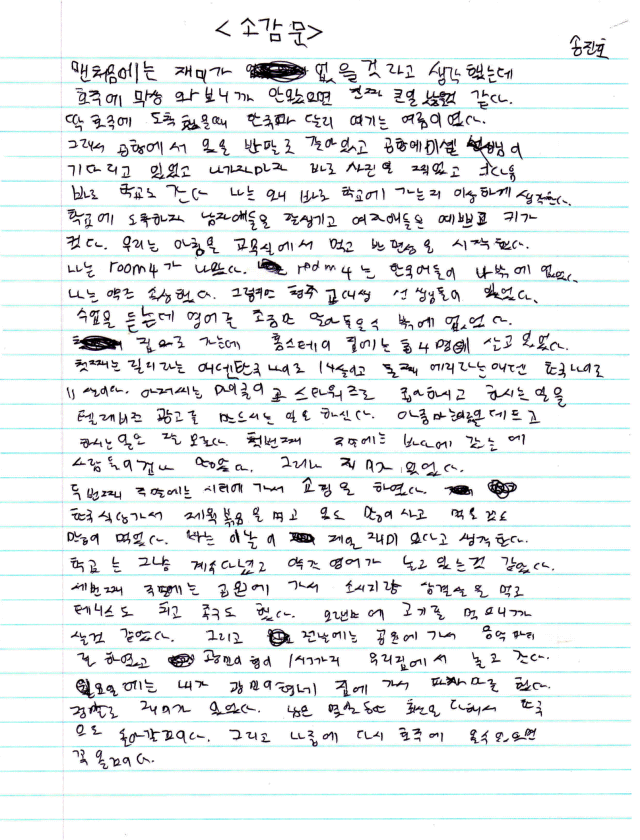 <소감문>
송진호
맨처음에는 재미가 없을 것라고 생각 했는데
호주에 막상 와 보니까 안왔으면 진짜 큰일 날뻔 같다.
딱 호주에 도착 했을때 한국과 달리 여기는 여름이였다.
그래서 공항에서 옷을 반팔로 갈아입고 공항에 미셸 선생님이
기다리고 있었고 나가자마자 바로 사진을 찍었고 그다음
바로 학교로 간다 나는 왜 바로 학교에 가는지 이상하게 생각한다.
학교에 도착하자 남자애들은 잘생기고 여자애들은 예쁘고 키가
컸다. 우리는 아침을 교육실에서 먹고 반편성을 시작했다.
나는 room4가 나왔다. room 4는 한국어들이 나 밖에 없었다.
나는 약간 속상했다. 그렇지만 청주 교대생 선생님들이 있었다.
수업을 듣는데 영어를 조금만 알아들을수 밖에 없었다.
집으로 가는데 홈스테이 집에는 총 4명이 살고 있었다.
첫째는 릴리라는 애인데 한국나이로 14살이고 둘째 에리라는애인데 한국나이로
11살이다. 아저씨는 마이클이고 스타워즈를 좋아하시고 하시는 일은
텔레비즌 광고를 만드시는 일을 하신다. 아줌마는
하시는일은 잘 모른다. 첫번째 주말에는 바다에 갔는데
사람들이 겁나 많았다. 그러나 재미가 있었다.
두번째 주말에는 시티에 가서 쇼핑을 하였다.
한국식당가서 제육볶음을 먹고 옷도 많이 사고 먹을 것도
많이 먹었다. 나는 이날이 제일 재미있다고 생각한다.
학교는 그냥 계속 다녔고 약간 영어가 늘고 있는것 같았다.
세번째 주말에는 공원에 가서 소시지랑 삼겹살을 먹고
테니스도 치고 족구도 했다. 오랜만에 고기를 먹으니까
살것 같았다. 그리고 전날에는 공원에 가서 음악 파티
를 하였고 광민이형이 1시까지 우리집에서 놀고 갔다.
일요일에는 내가 광민이형네 집에 가서 파자마를 했다.
정말로 재미가 있었다. 남은 몇일동안 최선을 다해서 한국
으로 돌아갈꺼이다. 그리고 나중에 다시 호주에 올수 있으면
꼭 올꺼이다.